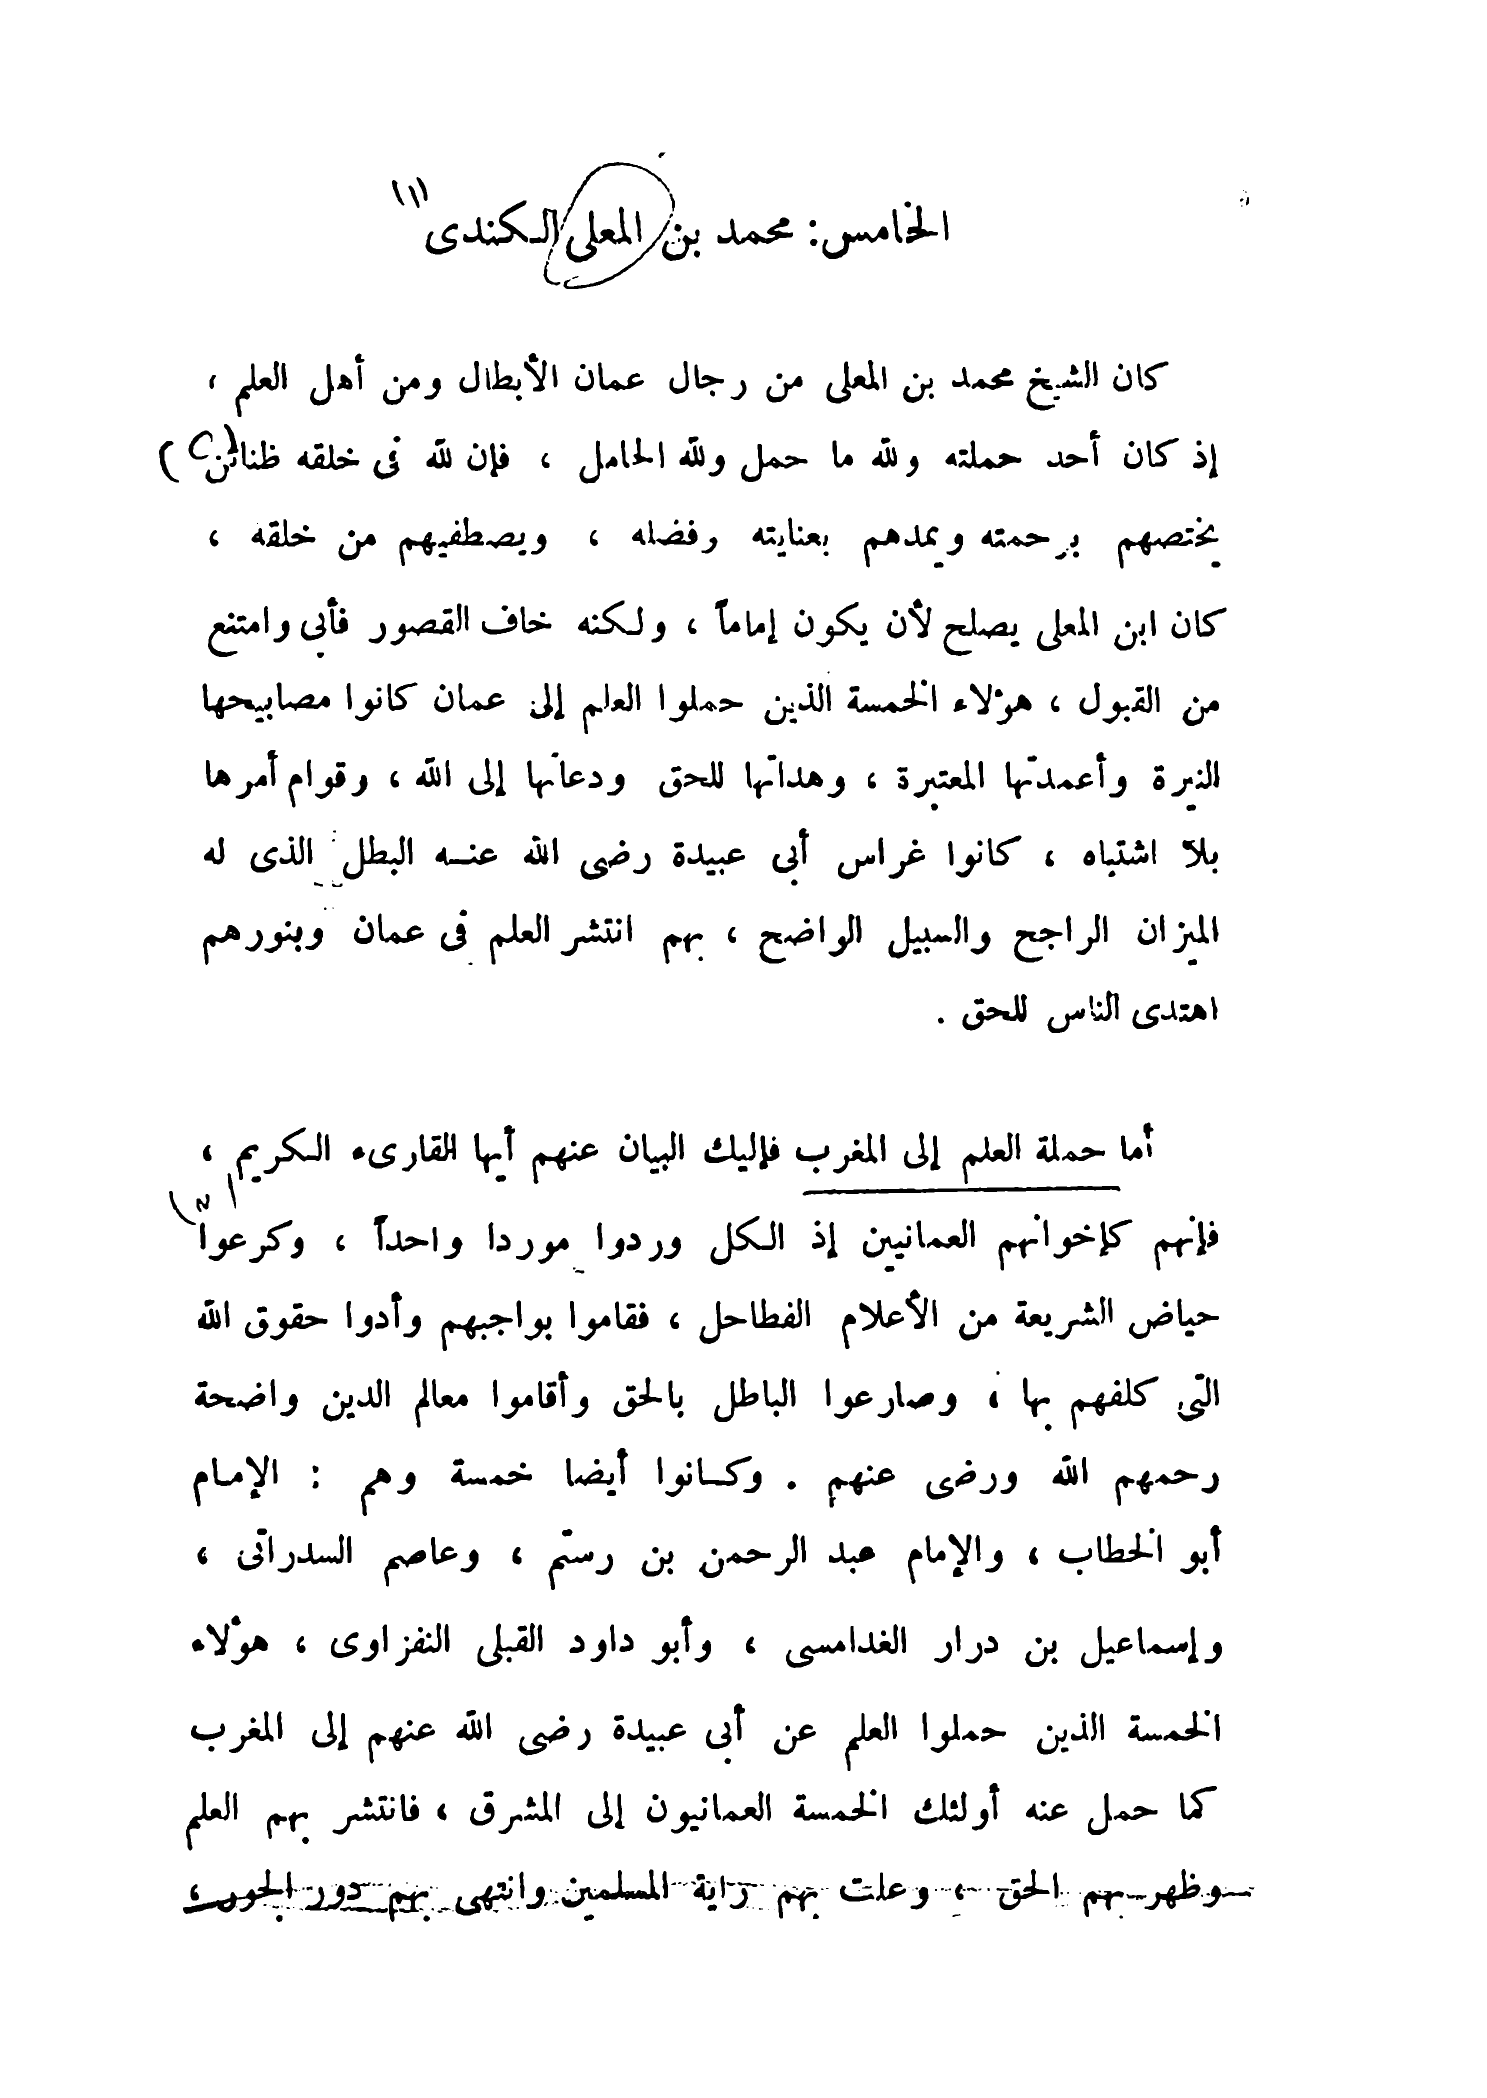 الخامس: محمد بن المعلى الكندى (١)
كان الشيخ محمد بن المعلى من رجال عمان الأبطال ومن أهل العلم ،
إذ كان أحد حملته ولله ما حمل ولله الحامل ، فإن لله فى خلقه ظنائن (٢)
يختصهم برحمته ويمدهم بعنايته رفضله ، ويصطفيهم من خلقه ،
كان ابن المعلى يصلح لأن يكون إماماً ، ولكنه خاف القصور فأبى وامتنع
من القبول ، هؤلاء الخمسة الذين حملوا العلم إلى عمان كانوا مصابيحها
النيرة وأعمدتها المعتبرة ، وهداتها للحق ودعاتها إلى الله ، وقوام أمرها
بلا اشتباه ، كانوا غراس أبى عبيدة رضى الله عنه البطل الذى له
الميزان الراجح والسبيل الواضح ، بهم انتشر العلم فى عمان وبنورهم
اهتدى الناس للحق .
أما حملة العلم إلى المغرب فإليك البيان عنهم أيها القارىء الكريم ،
فإنهم كإخوانهم العمانيين إذ الكل وردوا موردا واحداً ، وكرعوا (٣)
حياض الشريعة من الأعلام الفطاحل ، فقاموا بواجبهم وأدوا حقوق الله
التى كلفهم بها ، وصارعوا الباطل بالحق وأقاموا معالم الدين واضحة
رحمهم الله ورضى عنهم . وكانوا أيضا خمسة وهم : الإمام
أبو الخطاب ، والإمام عبد الرحمن بن رستم ، وعاصم السدراتى ،
وإسماعيل بن درار الغدامسى ، وأبو داود القبلى النفزاوى ، هؤلاء
الخمسة الذين حملوا العلم عن أبى عبيدة رضى الله عنهم إلى المغرب
كما حمل عنه أولئك الخمسة العمانيون إلى المشرق ، فانتشر بهم العلم
وظهر بهم الحق ، وعلت بهم راية المسلمين وانتهى بهم دور الجور ،